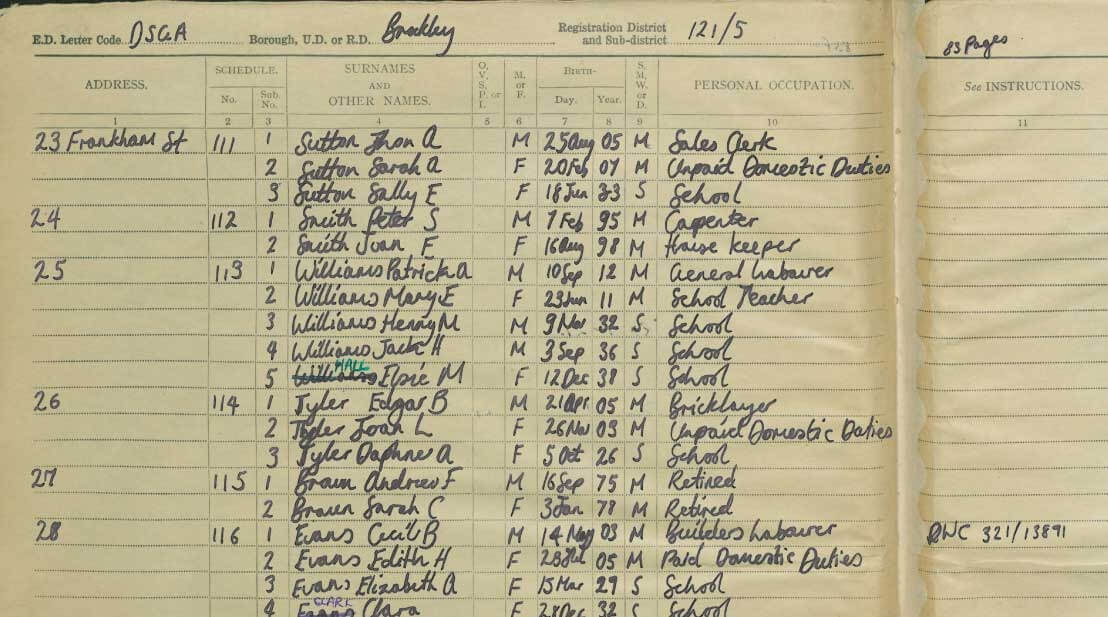 E.D. Letter Code DSGA Borough, U.D. or R.D. Brockley Registration District and Sub-district 121/5
83 Pages
ADDRESS. SCHEDULE. No. Sub. No. SURNAMES AND OTHER NAMES. O, V, S, P, or I. M. or F. BIRTH- Day. Year. S. M, W, or D. PERSONAL OCCUPATION. See INSTRUCTIONS.
1 2 3 4 5 6 7 8 9 10 11
23 Frankham St 111 1 Sutton Jhon A M 25 Aug 05 M Sales Clerk
2 Sutton Sarah A F 20 Feb 07 M Unpaid Domestic Duties
3 Sutton Sally E F 18 Jun 33 S School
24 112 1 Smith Peter S M 7 Feb 95 M Carpenter
2 Smith Joan F F 16 Aug 98 M House keeper
25 113 1 Williams Patrick A M 10 Sep 12 M General Labourer
2 Williams Mary E F 23 Jun 11 M School Teacher
3 Williams Henry M M 9 Mar 32 S School
4 Williams Jack H M 3 Sep 36 S School
HALL
5 Williams Elsie M F 12 Dec 38 S School
26 114 1 Tyler Edgar B M 21 Apr 05 M Bricklayer
2 Tyler Joan L F 26 Nov 03 M Unpaid Domestic Duties
3 Tyler Daphne A F 5 Oct 26 S School
27 115 1 Brown Andrew F M 16 Sep 75 M Retired
2 Brown Sarah C F 3 Jan 78 M Retired
28 116 1 Evans Cecil B M 14 May 03 M Builders Labourer RWC 321/13891
2 Evans Edith H F 23 Jul 05 M Paid Domestic Duties
3 Evans Elizabeth A F 15 Mar 29 S School
CLARK
4 Evans Clara F 28 Dec 32 S School